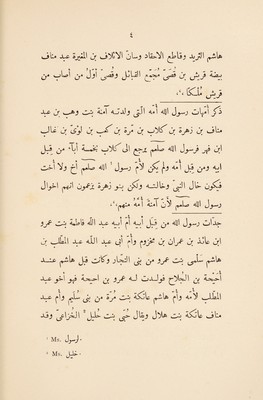 ٤
هاشم الثريد وقاطع الاحقاد وسانّ الائلاف بن المغيرة عبد مناف
بيضة قريش بن قُصَىّ مُجَمِّع القبائل وقُصَىّ أوّل من أصاب من
قريش مُلكًا.'.
ذكر أمّهات رسول الله أمّه الّتى ولدتـه آمنة بنت وهب بن عبد
مناف بن زهرة بن كلاب بن مُرة بن كعب بن لوىّ بن غالب
ابن فهر فرسول الله صلعم يرجع الى كلاب بخمسة آبآء من قِبل
ابيه ومن قِبل أمّه ولم يكن لأمّ رسول¹ الله صلعم أخ ولا أخت
فيكون خال النبىّ وخالته ولكن بنو زهرة يزعمون انهم اخوال
رسول الله صلعم لأن آمنة أُمَّهُ منهم.'.
جدّات رسول الله من قِبل أبيه أم أبيه عبد الله فاطمة بنت عمرو
ابن عائذ بن عمران بن مخزوم وأمّ أبى عبد الله عبد المطّلب بن
هاشم سلمى بنت عمرو من بنى النجّار وكانت قبل هاشم عند
أحيحة بن الجُلاح فولدت له عمرو بن احيحة فهو أخو عبد
المطّلب لأمّه وأمّ هاشم عاتكة بنت مُرّة من بنى سُليم وأم عبد
مناف عاتكة بنت هلال ويقال حُبّى بنت حُليل² الخُزاعىّ وقد
¹ Ms. لرسول.
² Ms. خليل.